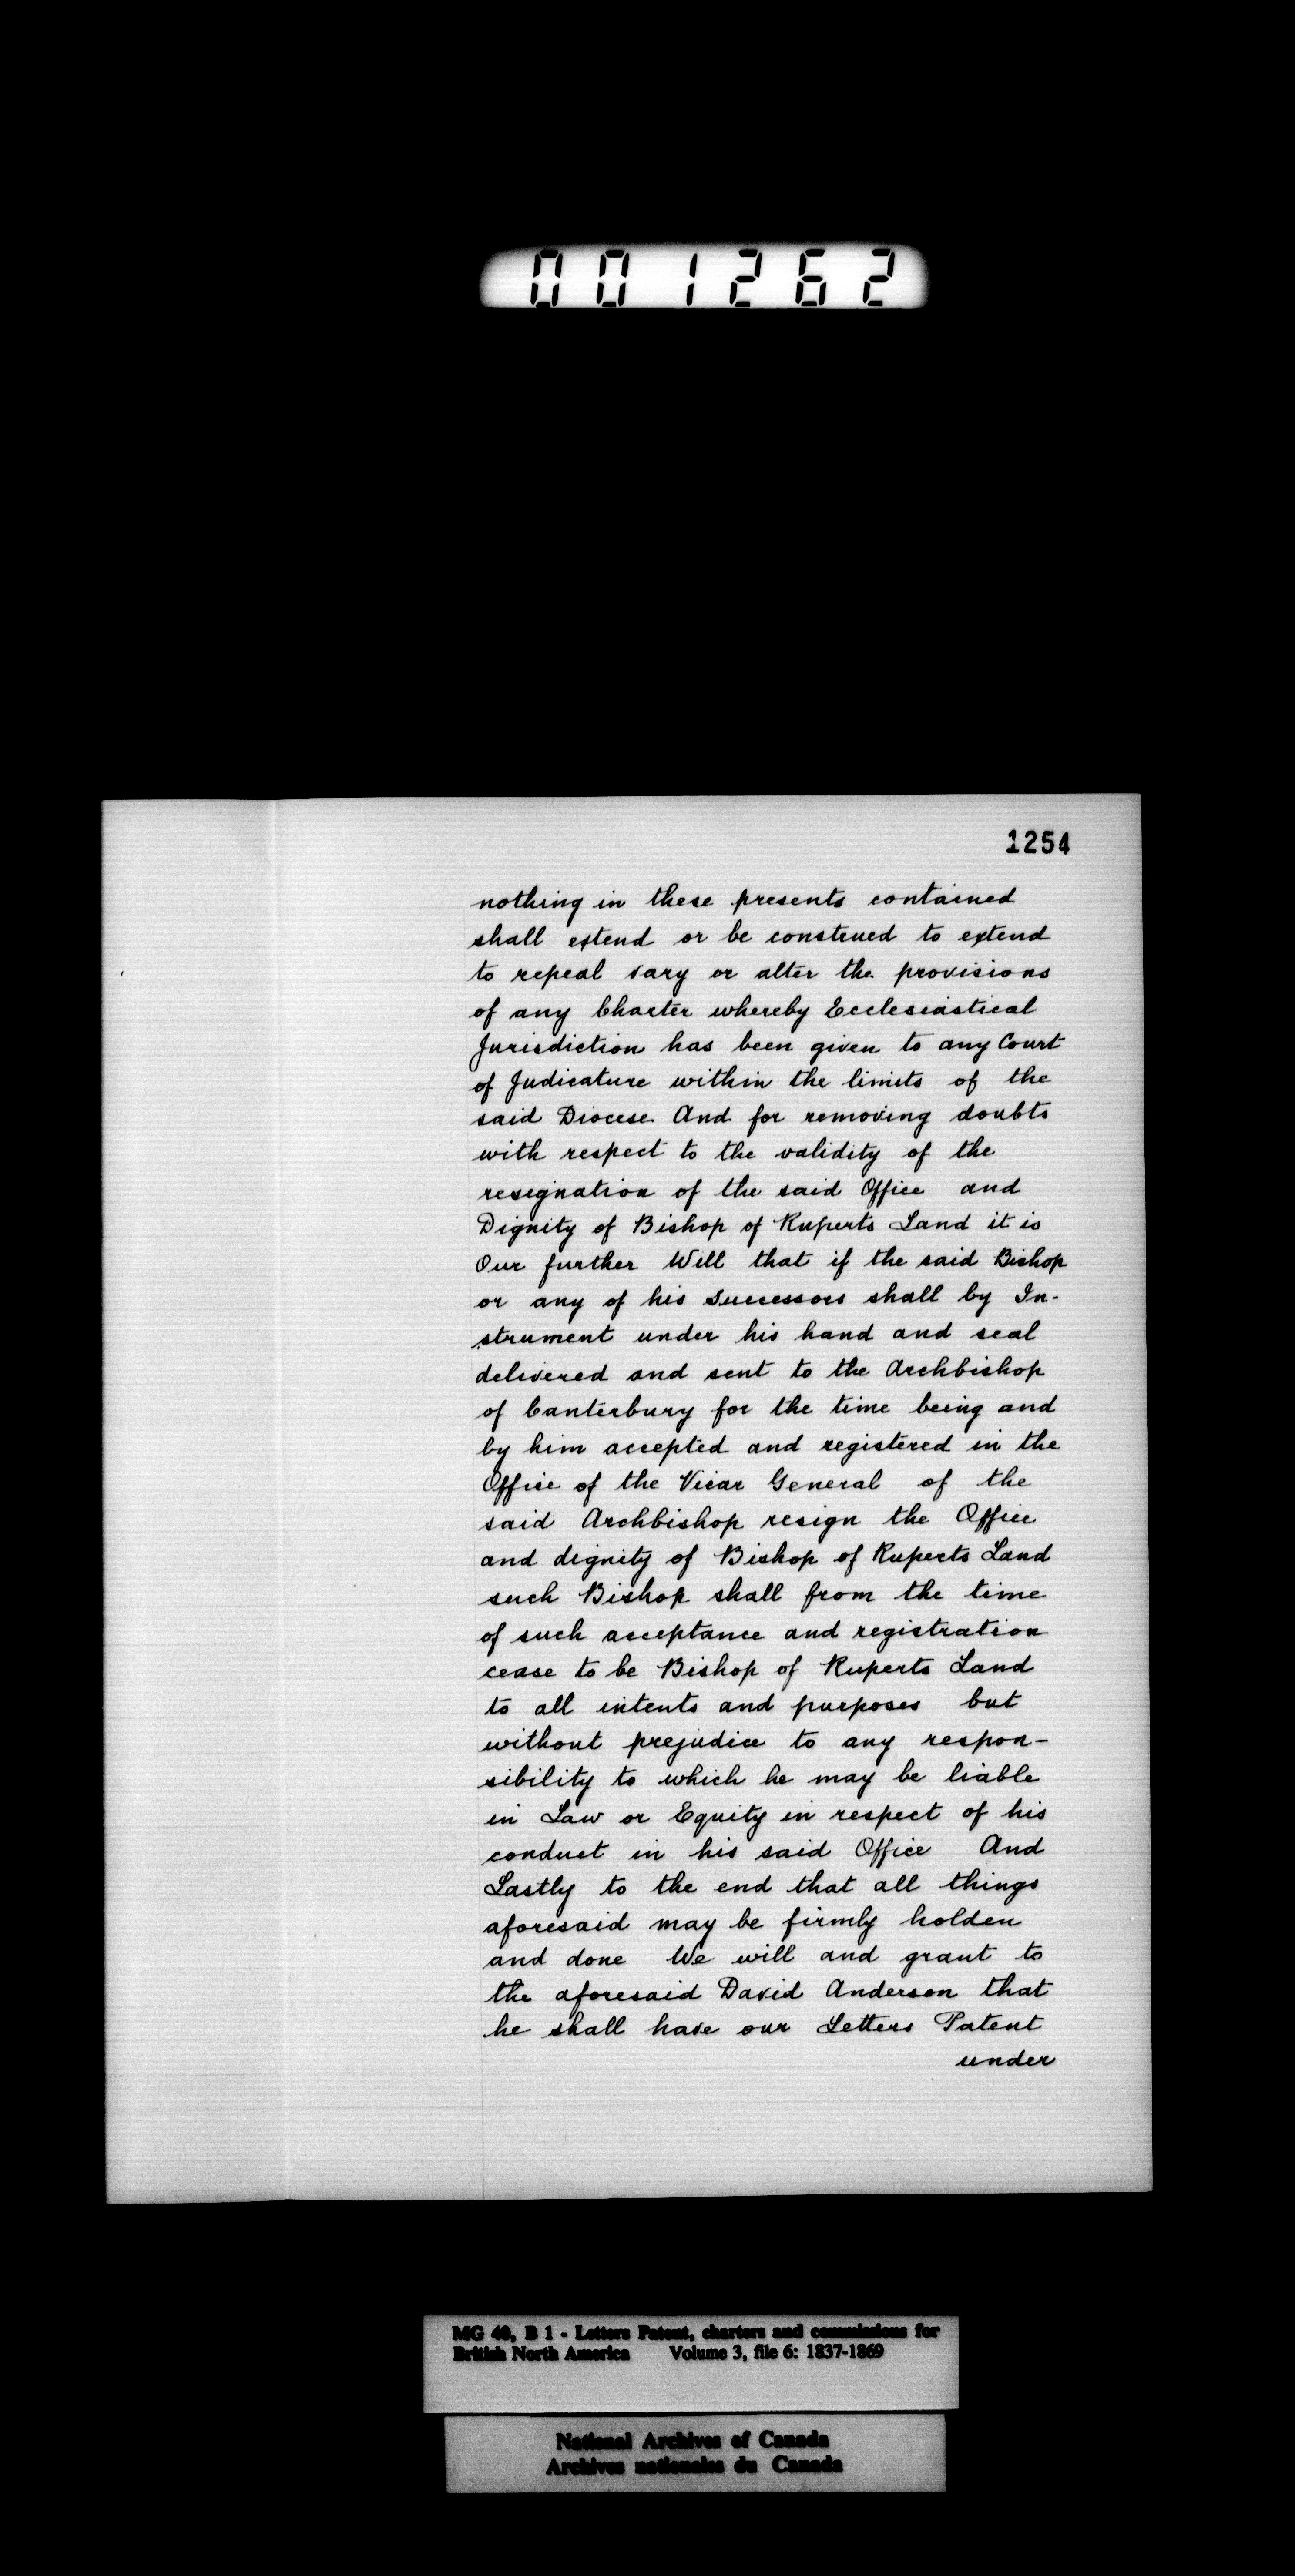 001262
1254
nothing in these presents contained
shall extend or be construed to extend
to repeal vary or alter the provisions
of any Charter whereby Ecclesiastical
Jurisdiction has been given to any Court
of Judicature within the limits of the
said Diocese And for removing doubts
with respect to the validity of the
resignation of the said Office and
Dignity of Bishop of Ruperts Land it is
Our further Will that if the said Bishop
or any of his successors shall by In-
strument under his hand and seal
delivered and sent to the Archbishop
of Canterbury for the time being and
by him accepted and registered in the
Office of the Vicar General of the
said Archbishop resign the Office
and dignity of Bishop of Ruperts Land
such Bishop shall from the time
of such acceptance and registration
cease to be Bishop of Ruperts Land
to all intents and purposes but
without prejudice to any respon-
sibility to which he may be liable
in Law or Equity in respect of his
conduct in his said Office And
Lastly to the end that all things
aforesaid may be firmly holden
and done We will and grant to
the aforesaid David Anderson that
he shall have our Letters Patent
under
MG 40, B 1 - Letters Patent, charters and commissions for
British North America Volume 3, file 6: 1837-1869
National Archives of Canada
Archives nationales du Canada